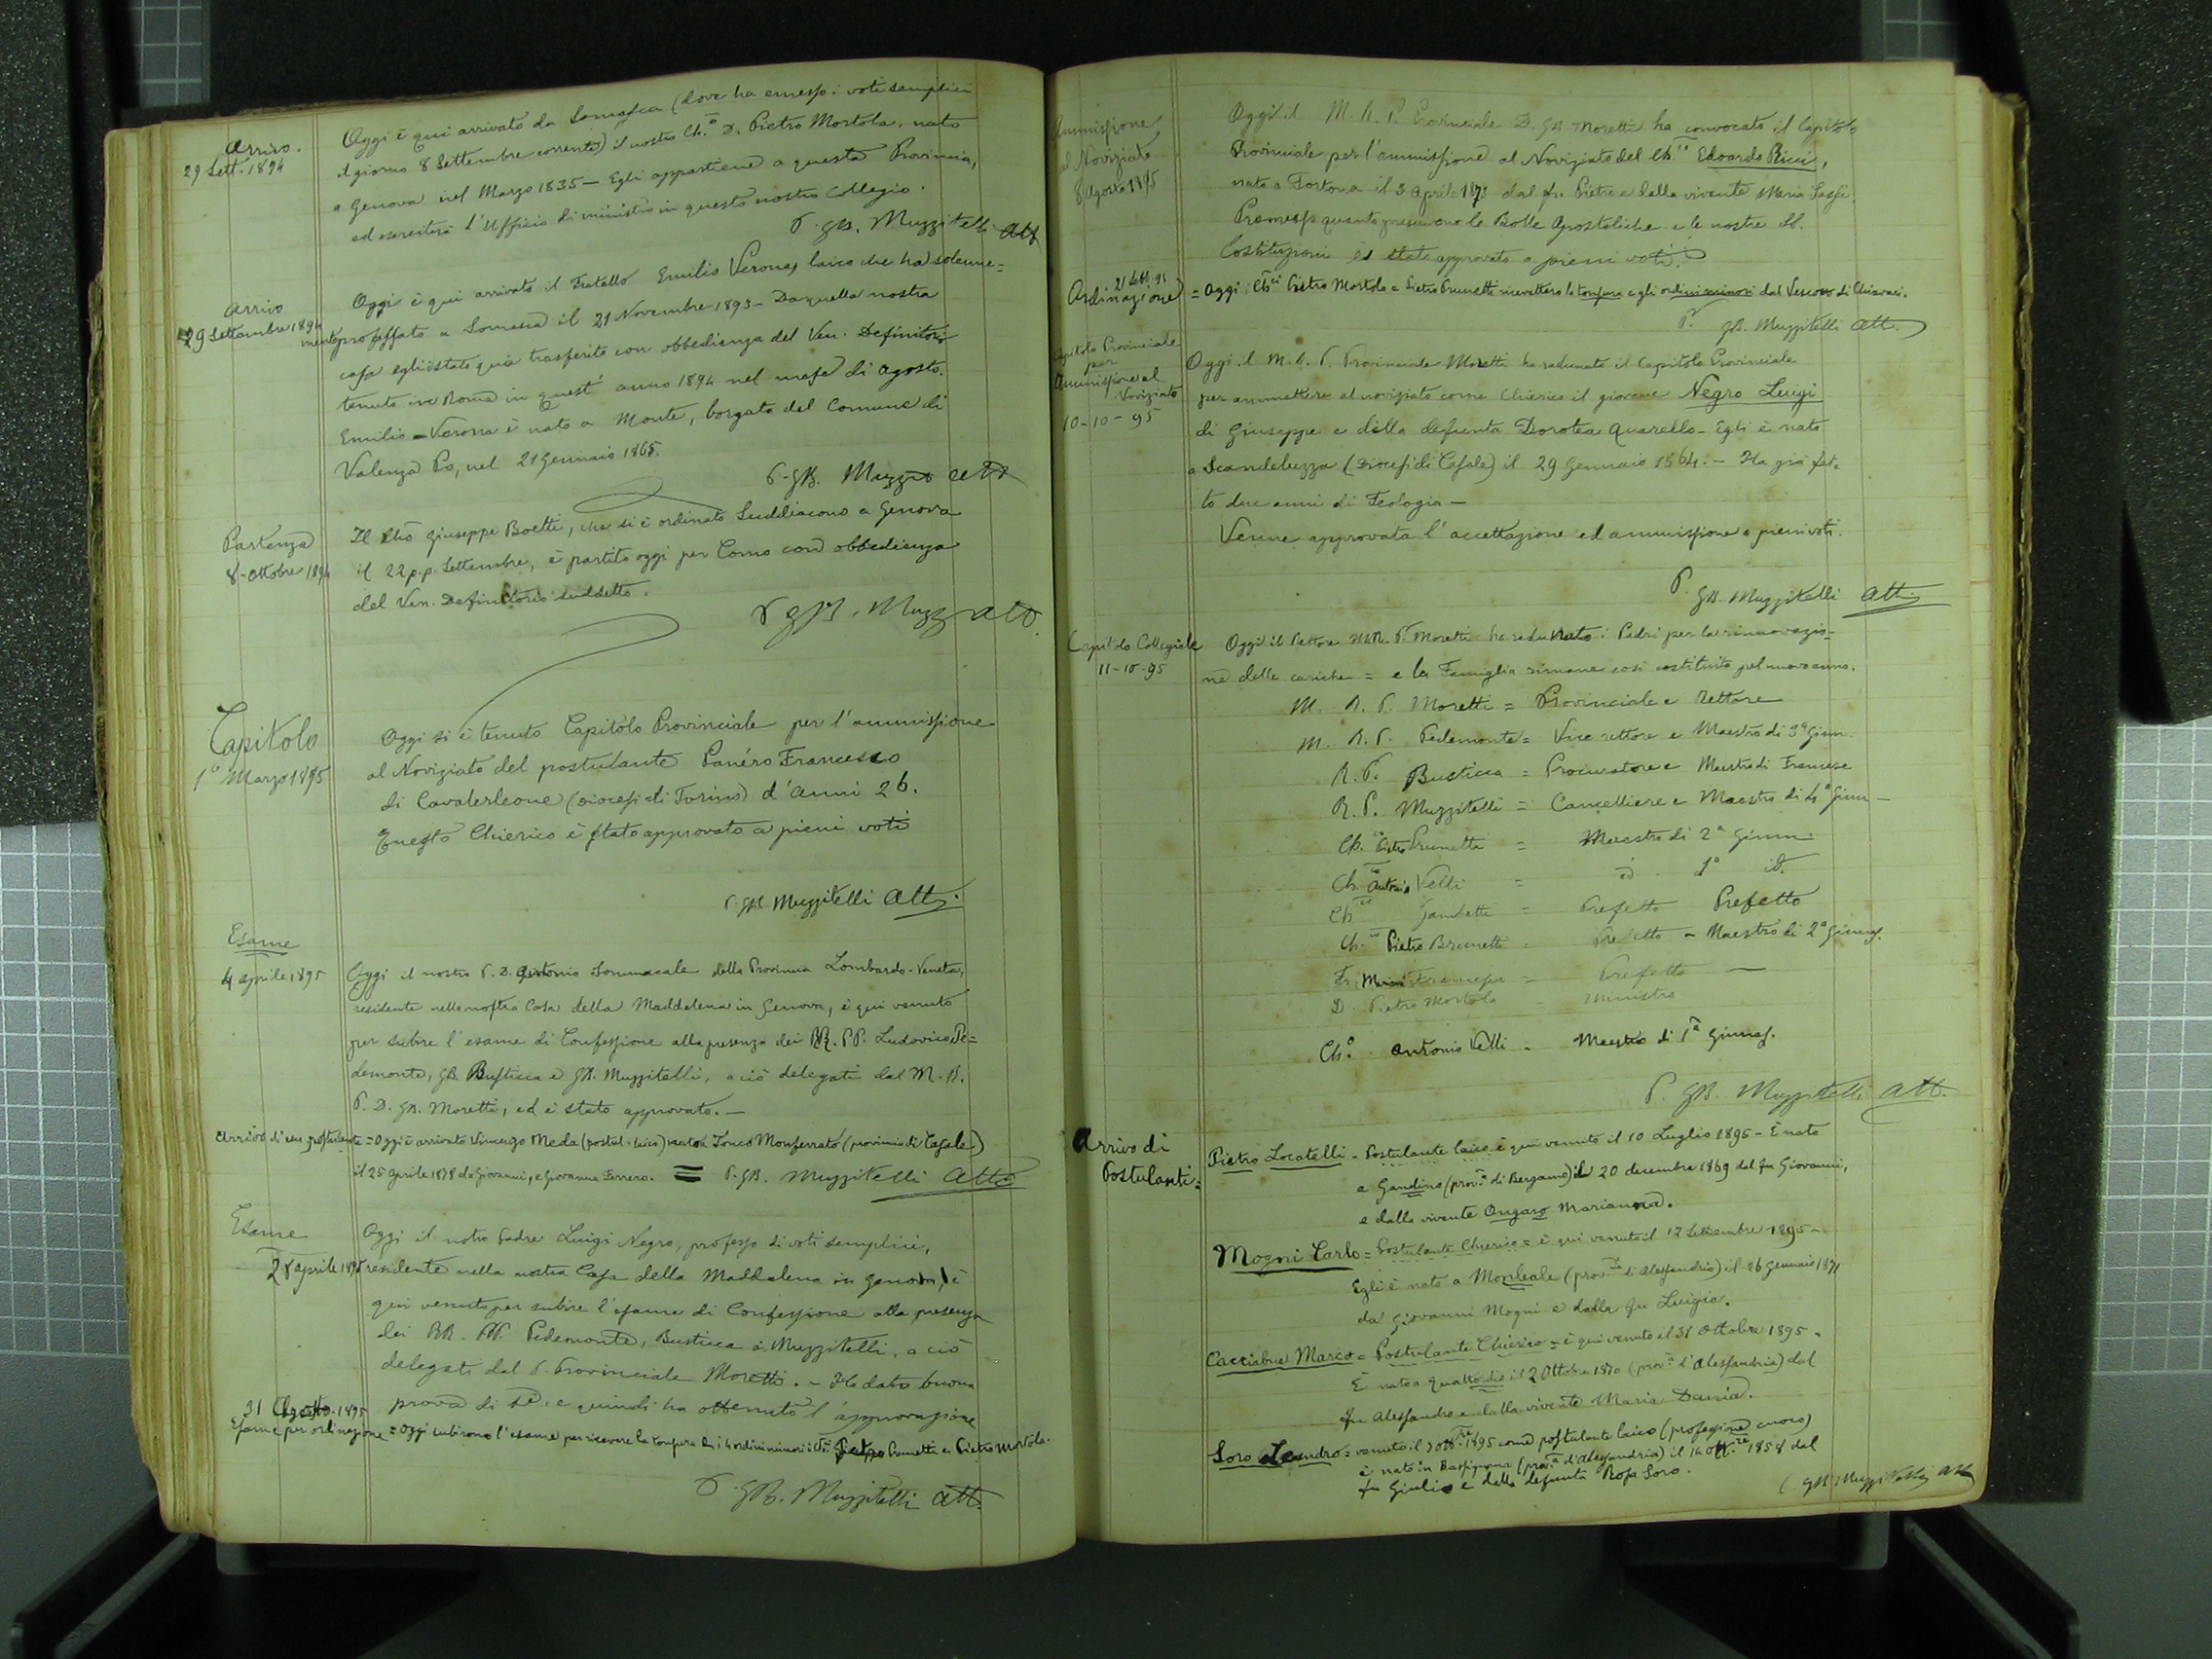 Arrivo.
29 Sett. 1894
Oggi è qui arrivato da Somasca (dove ha emesso i voti semplici
il giorno 8 Settembre corrente) il nostro Ch.º D. Pietro Mortola, nato
a Genova nel Marzo 1835 — Egli appartiene a questa Provincia,
ed eserciterà l'Ufficio di ministro in questo nostro Collegio.
P. GB. Muzzitelli Att
Arrivo
29 Settembre 1894
Oggi è qui arrivato il Fratello Emilio Verona, laico che ha solenne=
mente professato a Somasca il 21 Novembre 1893 — Da quella nostra
casa egli è stato qua trasferito con obbedienza del Ven. Definitorio
tenuto in Roma in quest'anno 1894 nel mese di Agosto.
Emilio Verona è nato a Monte, borgata del Comune di
Valenza Po, nel 21 Gennaio 1865.
P. GB. Muzz Att
Partenza
8 - Ottobre 1894
Il Ch.º Giuseppe Boetti, che si è ordinato Suddiacono a Genova
il 22 p.p. Settembre, è partito oggi per Como con obbedienza
del Ven. Definitorio suddetto.
P GB. Muzz Att.
Capitolo
1º Marzo 1895
Oggi si è tenuto Capitolo Provinciale per l'ammissione
al Noviziato del postulante Panéro Francesco
di Cavalerleone (Diocesi di Torino) d'anni 26.
Questo Chierico è stato approvato a pieni voti
P. GB. Muzzitelli Att.
Esame
4 Aprile 1895
Oggi il nostro P. D. Antonio Sommacale della Provincia Lombardo-Veneta,
residente nella nostra Casa della Maddalena in Genova, è qui venuto
per subire l'esame di Confessione alla presenza dei RR. PP. Ludovico Pe=
demonte, GB. Busticca e GB. Muzzitelli, a ciò delegati dal M. R.
P. D. GB. Moretti, ed è stato approvato. —
Arrivo di un postulante = Oggi è arrivato Vincenzo Meda (postul. laico) nato a Tonco Monferrato (provincia di Casale)
il 25 Aprile 1878 da Giovanni, e Giovanna Ferrero. = P. GB. Muzzitelli Att
Esame
28 aprile 1895
Oggi il nostro Padre Luigi Negro, professo di voti semplici,
residente nella nostra Casa della Maddalena in Genova, è
qui venuto per subire l'esame di Confessione alla presenza
dei RR. PP. Pedemonte, Busticca e Muzzitelli, a ciò
delegati dal P. Provinciale Moretti. — Ha dato buona
prova di sè, e quindi ha ottenuto l'approvazione
31 Agosto. 1895
Esame per ordinazione = Oggi subirono l'esame per ricevere la tonsura e i 4 ordini minori i Ch.i Pietro Prunetti e Pietro Mortola.
P. GB. Muzzitelli Att.
Ammissione
al Noviziato
8 Agosto 1895
Oggi il M. R. P. Provinciale D. GB. Moretti ha convocato il Capitolo
Provinciale per l'ammissione al Noviziato del Ch.co Edoardo Ricci,
nato a Tortona il 3 Aprile dal fu Pietro e della vivente Maria
Premesso quanto prescrivono le Bolle Apostoliche e le nostre SS.
Costituzioni è stato approvato a pieni voti.
21 Sett. 95
Ordinazione = Oggi i Ch.ci Pietro Mortola e Pietro Prunetti ricevettero la tonsura e gli ordini minori dal Vescovo di Chiavari.
P. GB. Muzzitelli Att.
Capitolo Provinciale
per
Ammissione al
Noviziato
10-10-95
Oggi il M. R. P. Provinciale Moretti ha radunato il Capitolo Provinciale
per ammettere al noviziato come Chierico il giovane Negro Luigi
di Giuseppe e della defunta Dorotea Quarello — Egli è nato
a Scandeluzza (Diocesi di Casale) il 29 Gennaio 1864. — Ha già fat=
to due anni di Teologia —
Venne approvata l'accettazione ed ammissione a pieni voti.
P. GB. Muzzitelli Att.
Capitolo Collegiale
11-10-95
Oggi il Rettore M.R. P. Moretti ha radunato i Padri per la rinnovazio=
ne delle cariche = e la Famiglia rimane così costituita pel nuovo anno.
M. R. P. Moretti = Provinciale e Rettore
M. R. P. Pedemonte = Vice rettore e Maestro di 3ª Ginn.
R. P. Busticca = Procuratore e Maestro di Francese
R. P. Muzzitelli = Cancelliere e Maestro di 4ª Ginn —
Ch. Pietro Prunetti = Maestro di 2ª Ginn.
Ch. Antonio Velli = id. 1ª id.
Ch.co Gambetti = Prefetto Prefetto
Ch.co Pietro Brunetti = Prefetto — Maestro di 2ª Ginnas.
Fr. = Prefetto —
D. Pietro Mortola = Ministro
Ch.º Antonio Velli = Maestro di 1ª Ginnas.
P. GB. Muzzitelli Att.
Arrivo di
Postulanti =
Pietro Locatelli = Postulante laico è qui venuto il 10 Luglio 1895 — È nato
a Gandino (prov.ª di Bergamo) il 20 dicembre 1869 dal fu Giovanni,
e dalla vivente Ongaro Marianna.
Mogni Carlo = Postulante Chierico = è qui venuto il 12 Settembre 1895 —
Egli è nato a Monleale (prov.ª di Alessandria) il 26 Gennaio 1871
da Giovanni Mogni e dalla fu Luigia.
Cacciabue Marco = Postulante Chierico = è qui venuto il 31 Ottobre 1895 —
È nato a Quattordio il 2 Ottobre 1870 (prov.ª d'Alessandria) dal
fu Alessandro e dalla vivente Maria Dania.
Soro Leandro = venuto il 7 Ott.re 1895 come postulante laico (professione cuoco)
è nato in Bassignana (prov.ª d'Alessandria) il 14 Ott.re 1858 dal
fu Giulio e dalla defunta Rosa Soro.
P. GB. Muzzitelli Att